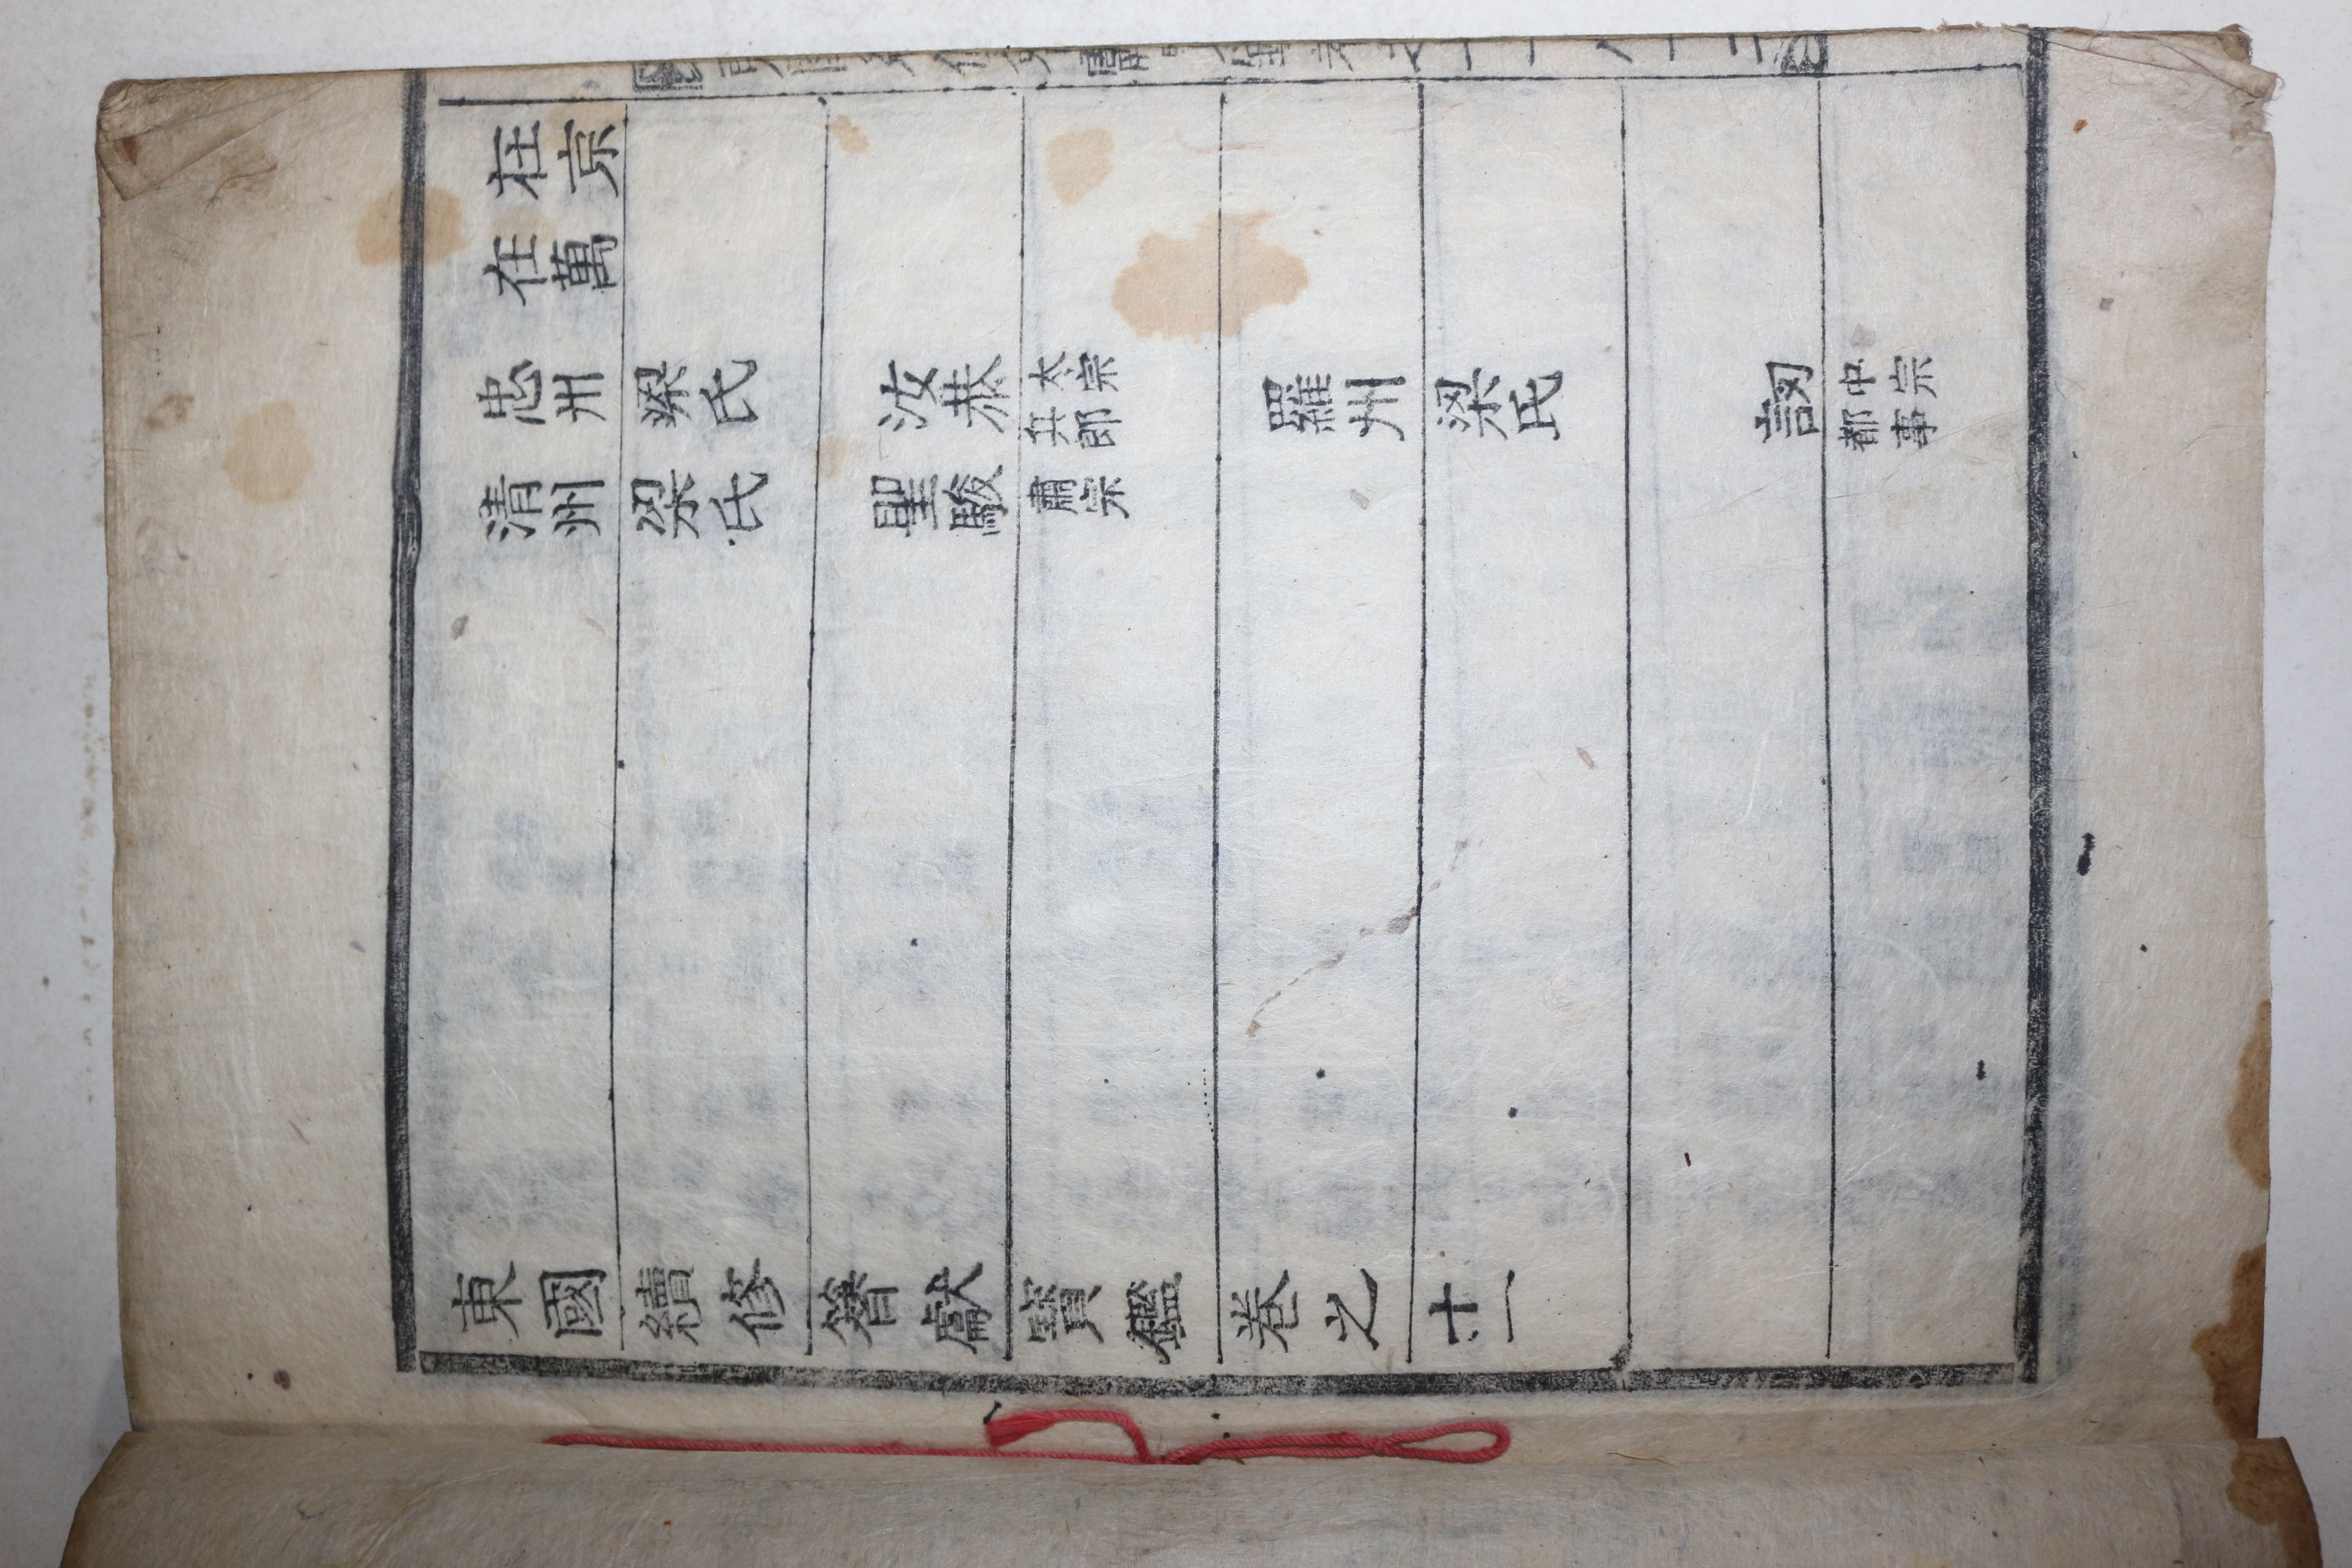 京
在萬
忠州梁氏 汝恭 太宗兵郎 羅州梁氏 中宗都事
清州梁氏 聖駿 肅宗
東國續修簪獻寶鑑卷之十一